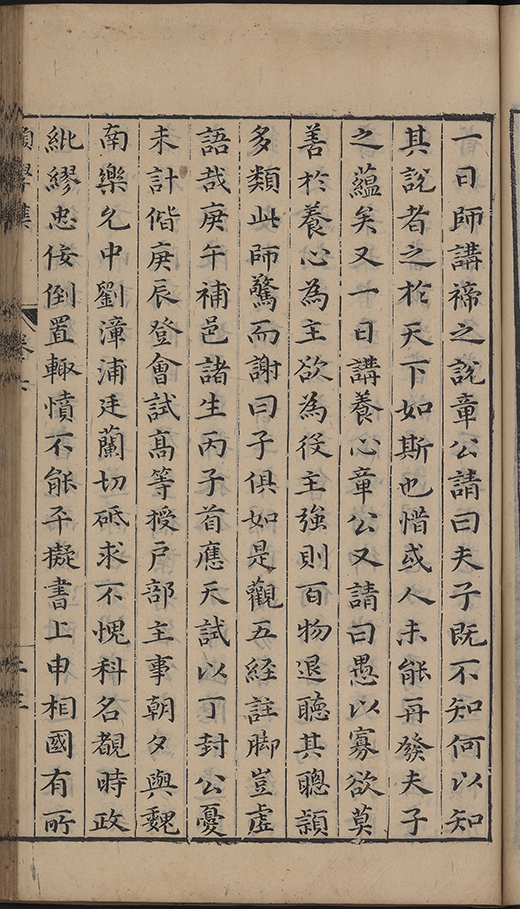 一日師講禘之說章公請曰夫子既不知何以知
其說者之於天下如斯也惜或人未能再發夫子
之蘊矣又一日講養心章公又請曰愚以寡欲莫
善於養心為主欲為役主強則百物退聽其聰頴
多類此師驚而謝曰子俱如是觀五經註脚豈虛
語哉庚午補邑諸生丙子首應天試以丁封公憂
未計偕庚辰登會試髙等授戶部主事朝夕與魏
南樂允中劉漳浦廷蘭切砥求不愧科名覩時政
紕繆忠佞倒置輙憤不能平擬書上申相國有所